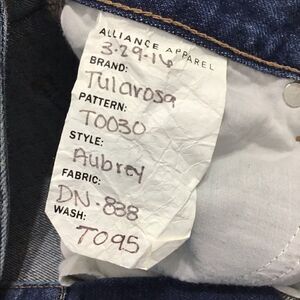 ALLIANCE APPAREL
3-29-16
BRAND:
Tularosa
PATTERN:
T0030
STYLE:
Aubrey
FABRIC:
DN-838
WASH:
T095